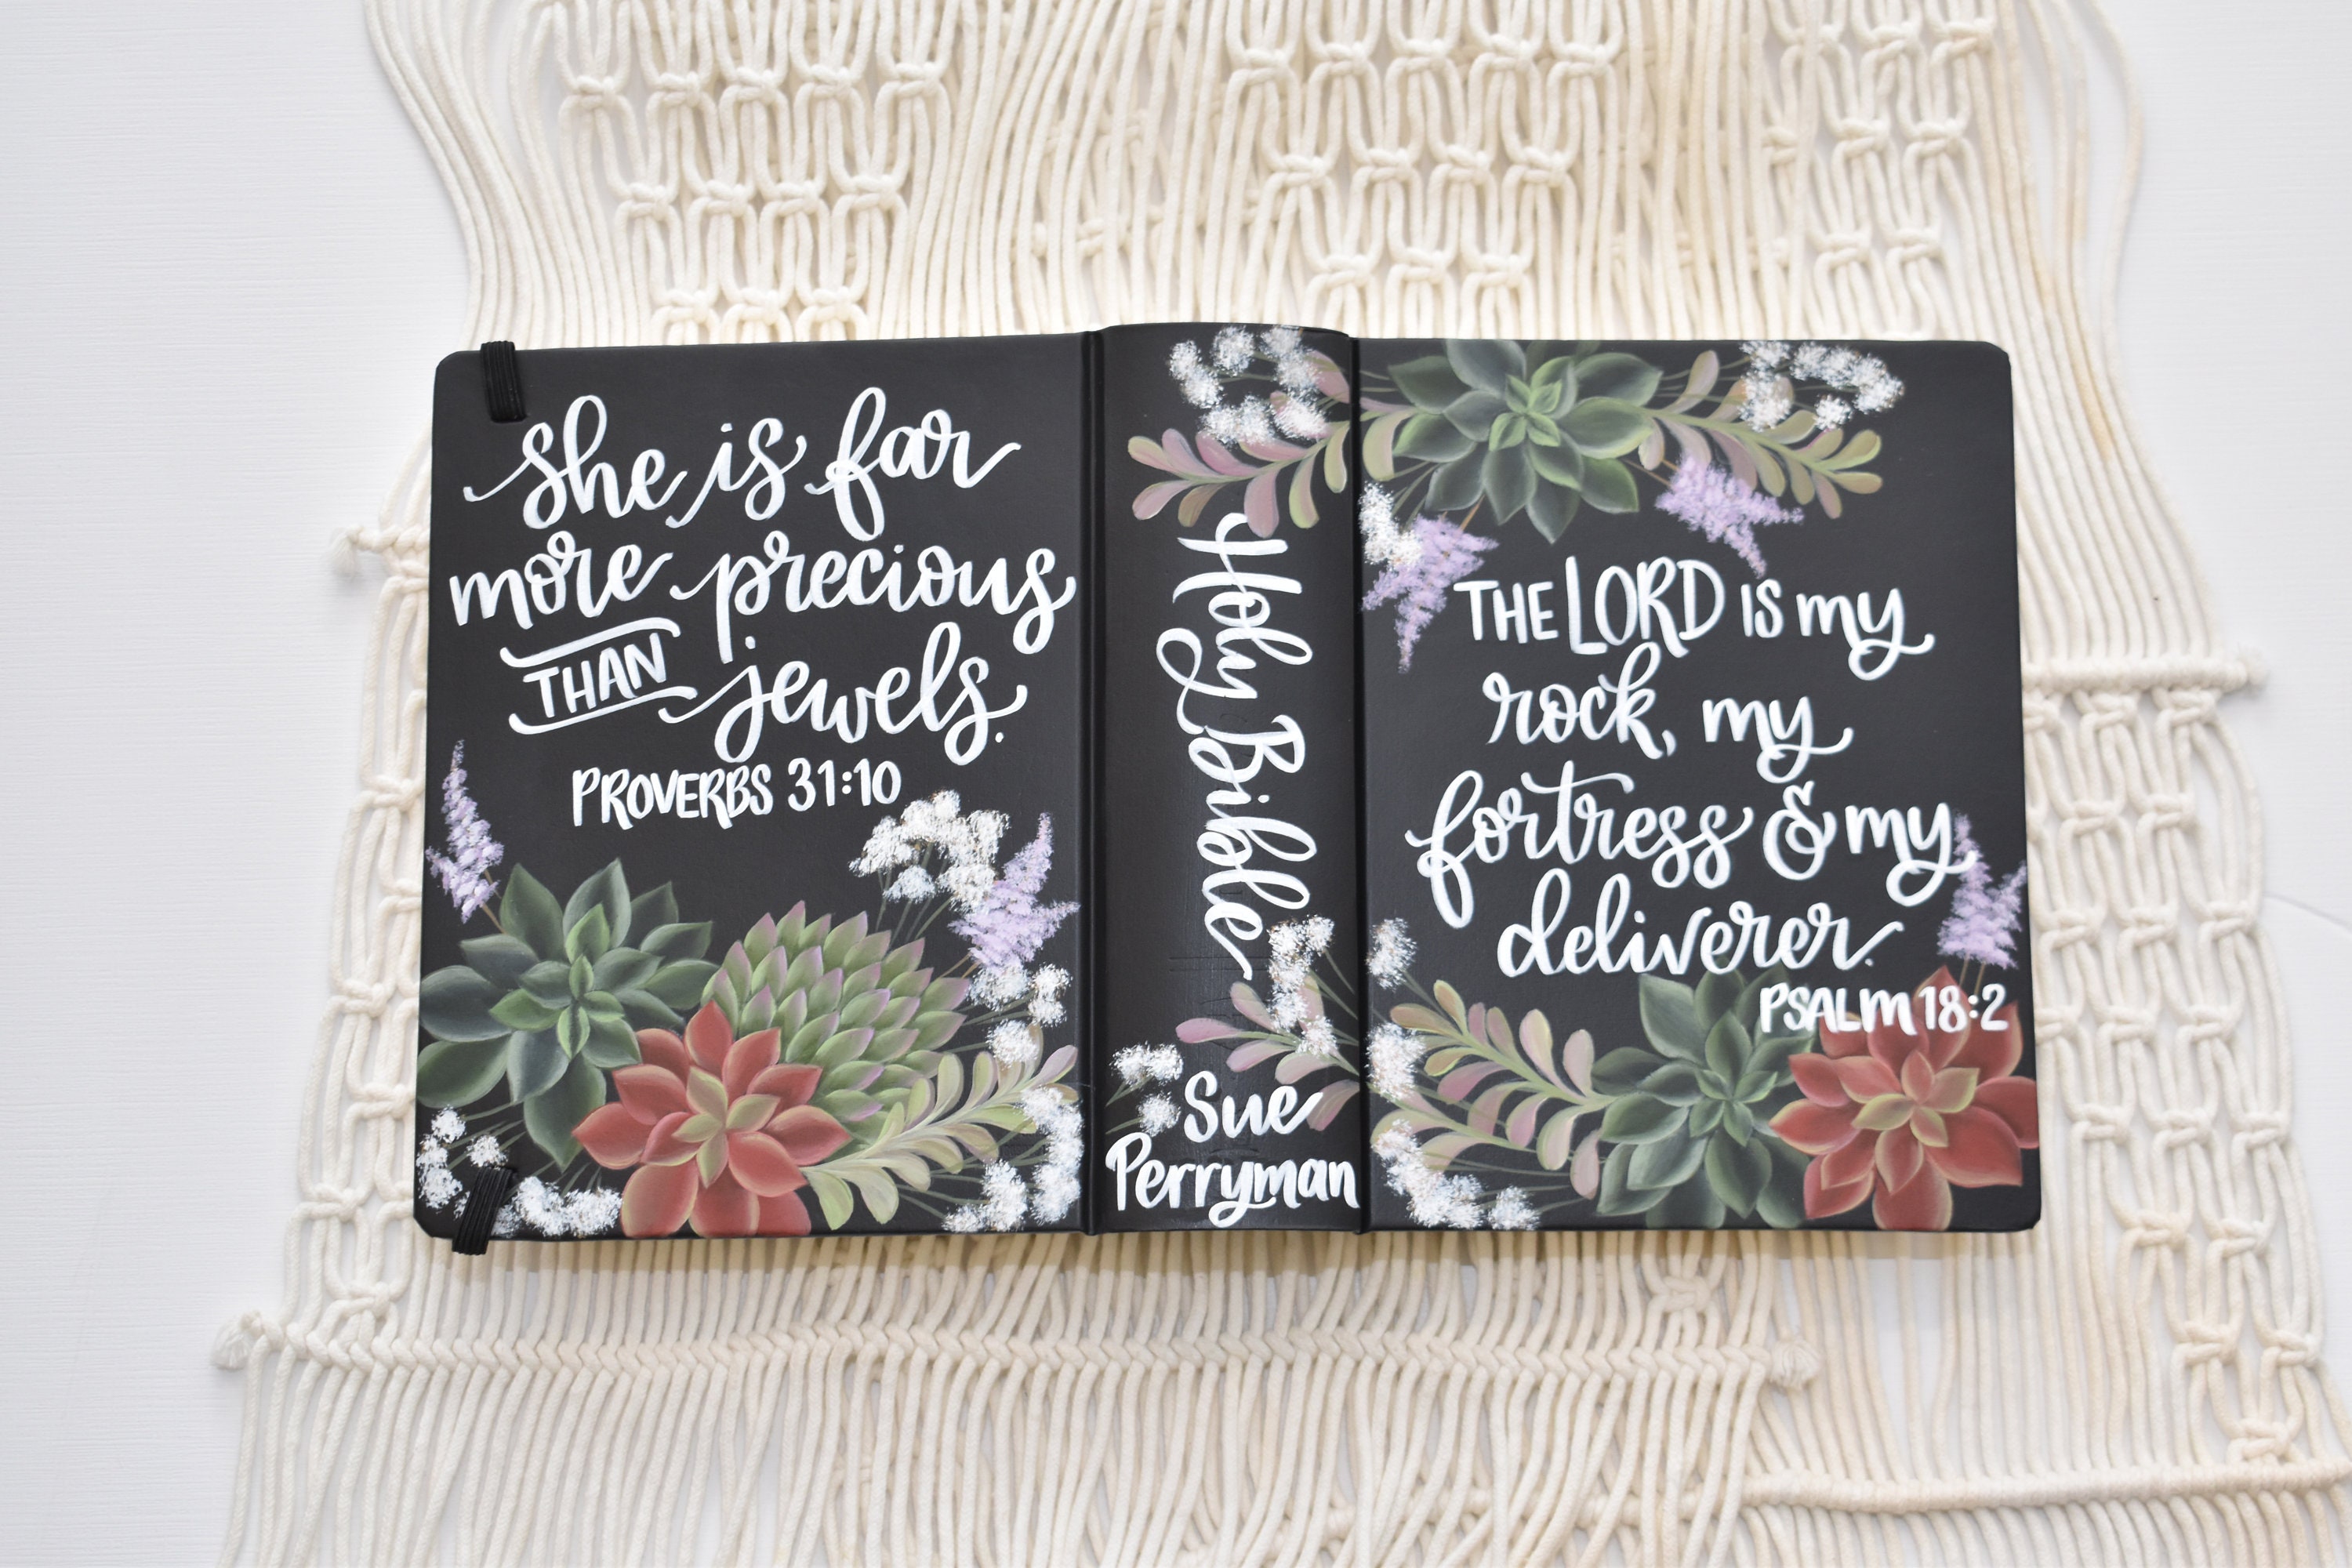 she is far
more precious
THAN jewels.
PROVERBS 31:10
Holy Bible
Sue
Perryman
THE LORD IS my
rock, my
fortress & my
deliverer.
PSALM 18:2